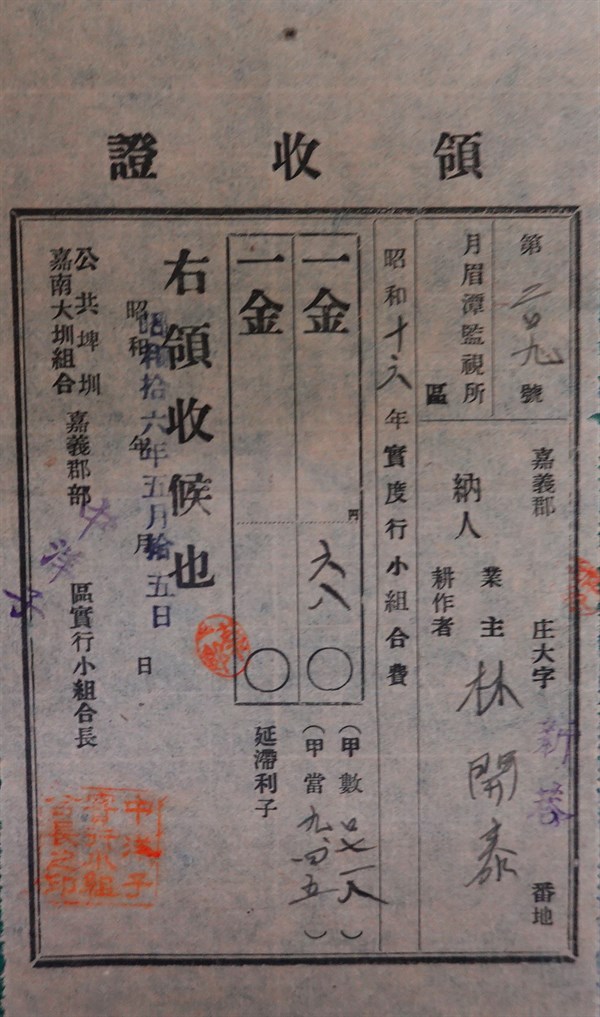 領收證
第二〇九號
月眉潭監視所
區
嘉義郡 庄大字 新巷 番地
納人
業主
耕作者
林開泰
昭和十六年實度行小組合費
一金 六八〇
円
(甲數 )
(甲當 九.四五)
一金 〇
延滯利子
右領收候也
昭和 年 月 日
昭和拾六年五月拾五日
公共埤圳
嘉南大圳組合
嘉義郡部
中洋子
區實行小組合長
中洋子
實行小組
合長之印